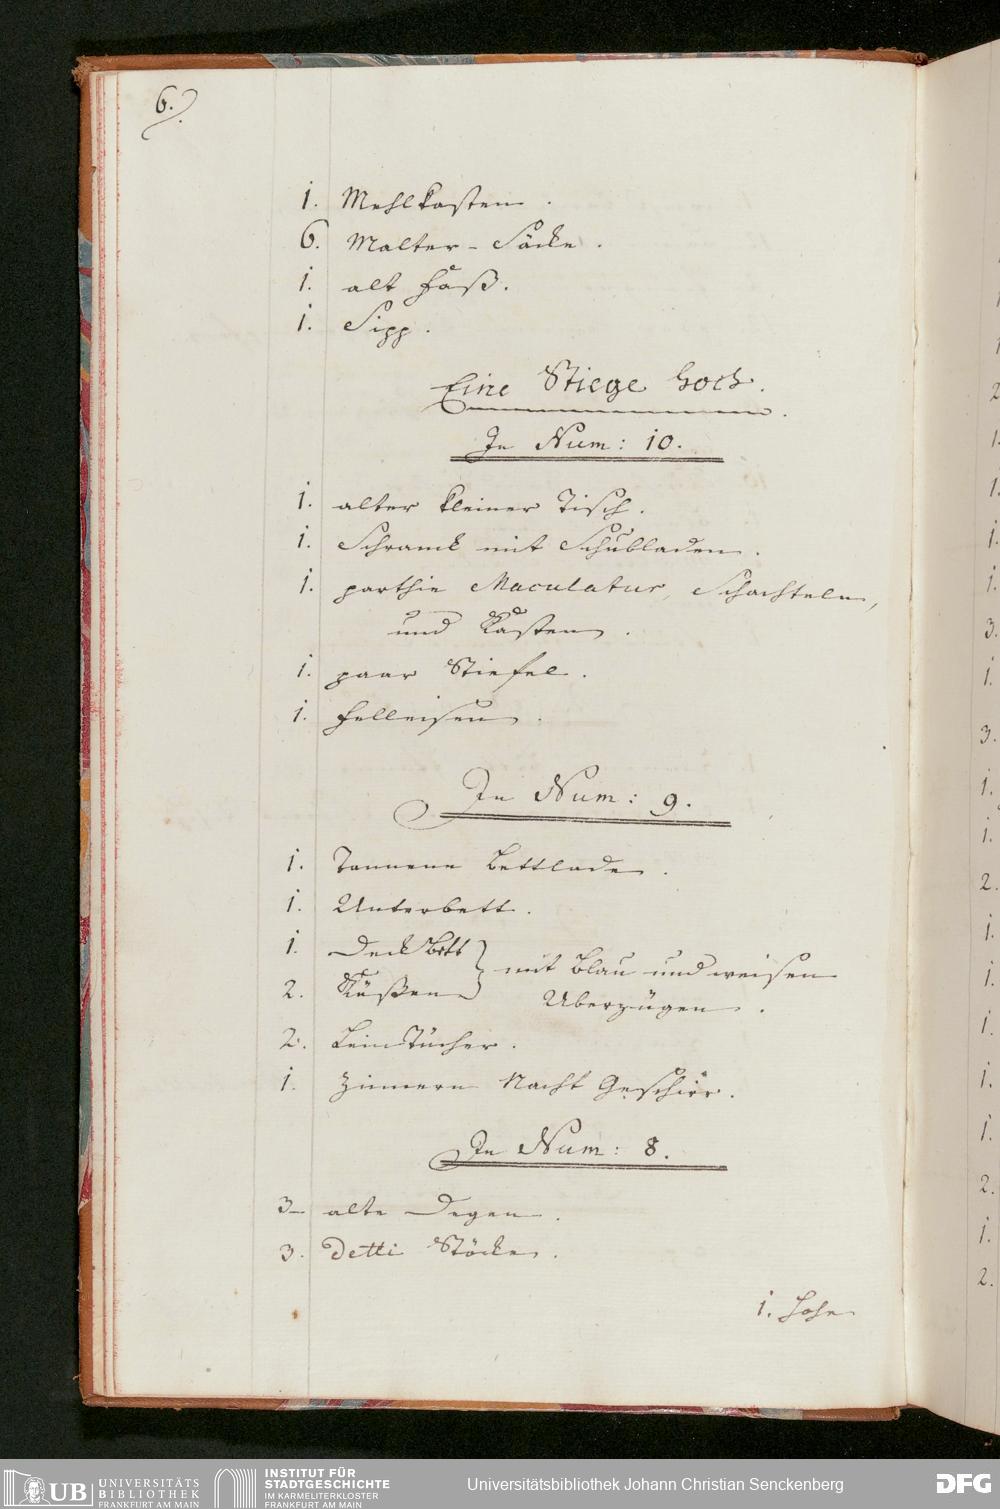 6.
1. Mehlkasten.
6. Malter-Säcke.
1. alt Faß.
1. Sipp.
Eine Stiege hoch.
In Num: 10.
1. alter kleiner Tisch.
1. Schranck mit Schubladen.
1. parthie Maculatur, Schachteln,
und Kasten.
1. paar Stiefel.
1. Felleisen.
In Num: 9.
1. Tannene Bettlade.
1. Unterbett.
1. Deck Bett } mit Blau und weisen
2. Küßen Uberzügen.
2. Lein Tücher.
1. Zinnern Nacht Geschirr.
In Num: 8.
3- alte Degen.
3. Detti Stöcke.
1. Hohe
UB UNIVERSITÄTS
BIBLIOTHEK
FRANKFURT AM MAIN
INSTITUT FÜR
STADTGESCHICHTE
IM KARMELITERKLOSTER
FRANKFURT AM MAIN
Universitätsbibliothek Johann Christian Senckenberg
DFG